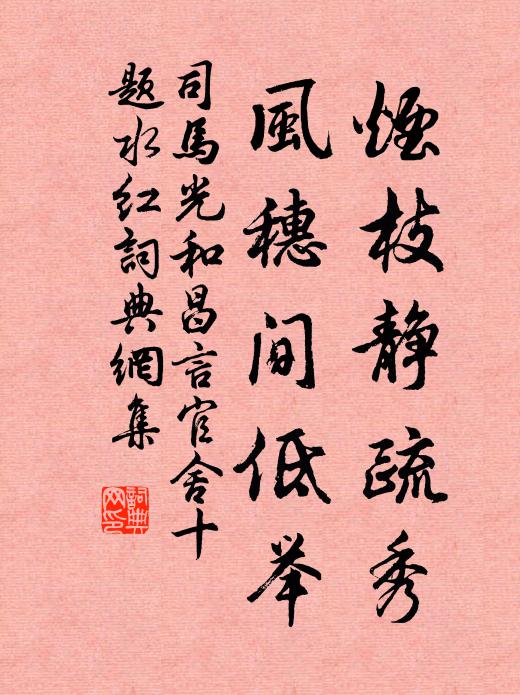 煙枝静疏秀
風穗間低举
司馬光和昌言官舍十
题水红詞典網集
詞典网印